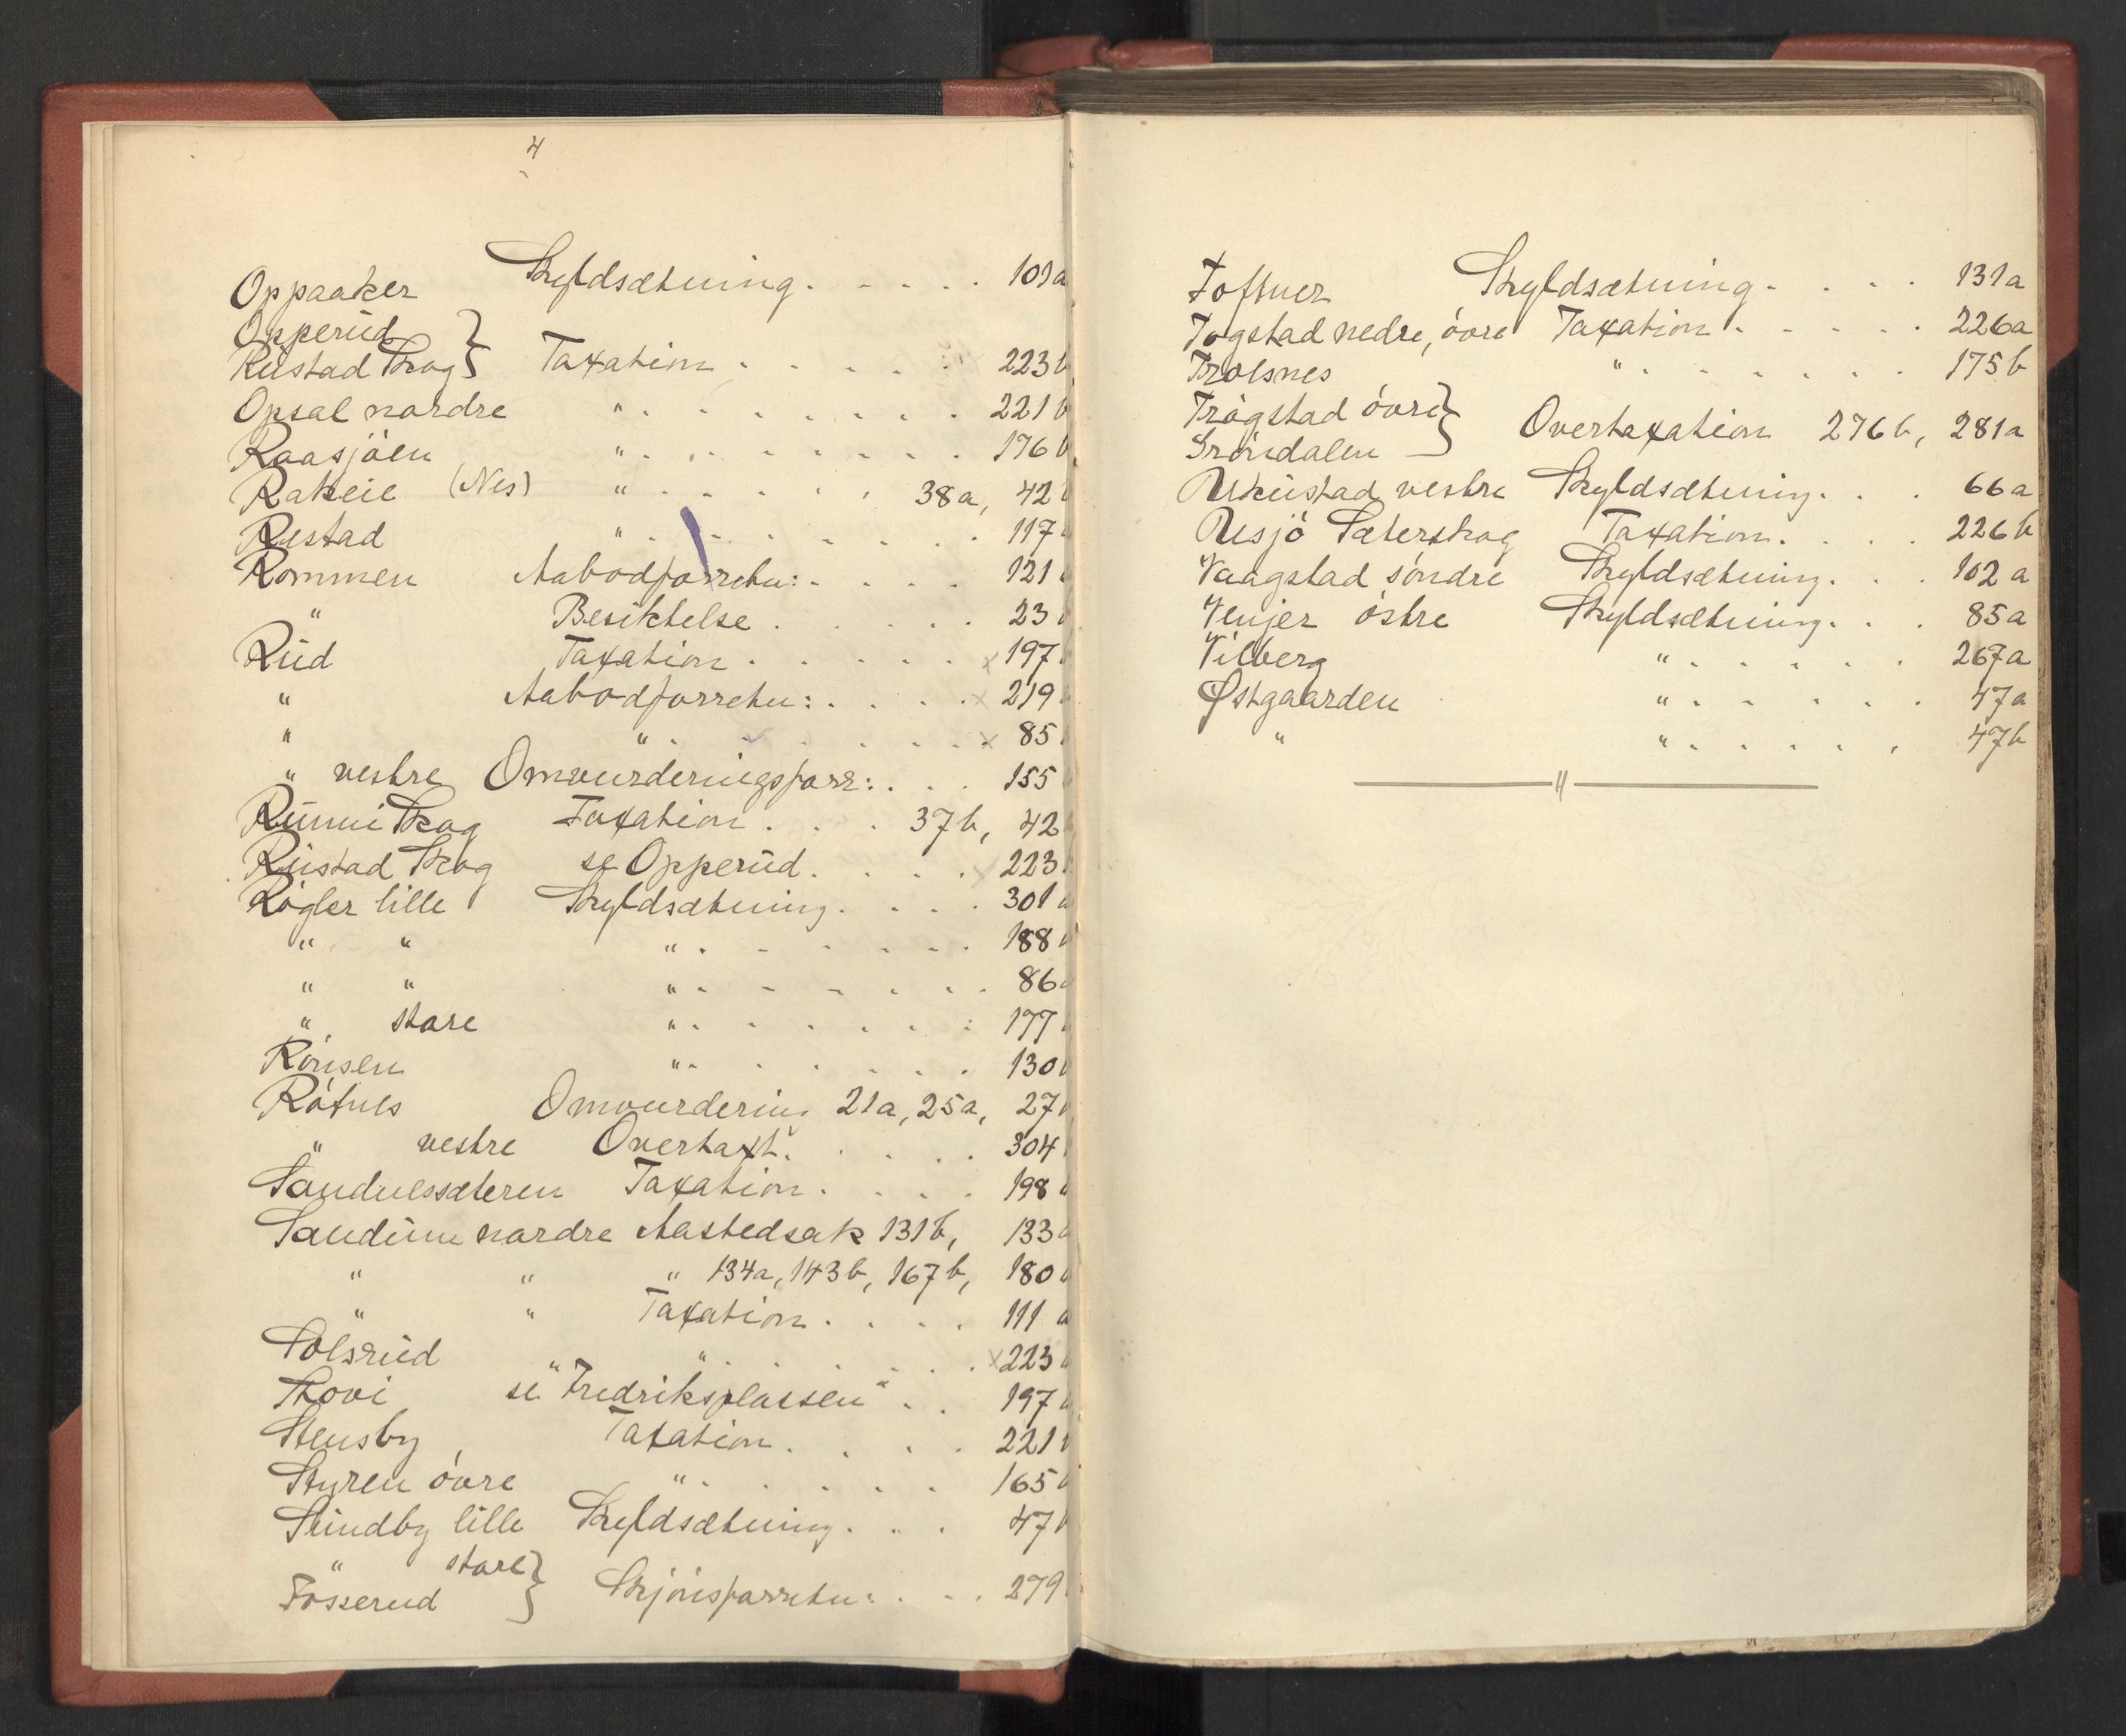 4
Oppaaker Skyldsætning . . . . . 101a
Opperud }
Rustad Skog } Taxation . . . . . 223b
Opsal nordre " . . . . . . . 221b
Raasjöen " . . . . . . . 176b
Rakeie (Nes) " . . . . . 38a, 42
Restad " . . . . . . . 117
Rommen Aabodforretn: . . . . 121
" Besiktelse . . . . . 23
Rud Taxation . . . . . x 197
" Aabodforretn: . . . . x 219
" " . . . . . . . x 85
" vestre Omvurderingsforr: . . . 155
Runni Skog Taxation . . . 37b, 42
Rustad Skog se Opperud . . . . x 223
Rögler lille Skyldsætning . . . . 301
" " " . . . . . . 188
" " " . . . . . . 86
" store " . . . . . . 177
Rönsen " . . . . . . 130
Rötnes Omvurdering 21a, 25a, 27
" vestre Overtaxt. . . . . . 304
Sandnessæteren Taxation . . . . 198
Sandum nordre Aastedsak 131b, 133
" " " 134a, 143b, 167b, 180
" " Taxation . . . . 111 a
Solsrud " . . . . . . x 223
Skovi se "Fredriksplassen" . . 197
Stensby Taxation . . . . 221
Styren övre " . . . . . . 165
Sundby lille Skyldsætning . . . 47
" store }
Tösserud } Skjönsforretn: . . . 279
Toftner Skyldsætning . . . . 131a
Togstad nedre, övre Taxation . . . . . 226a
Trolsnes " . . . . . . . 175b
Trögstad övre }
Gröndalen } Overtaxation 276b, 281a
Ukustad vestre Skyldsætning . . . 66a
Uesjö Säterskog Taxation . . . . 226b
Vaagstad söndre Skyldsætning . . . 102a
Venjer östre Skyldsætning . . . 85a
Vilberg " . . . . . . 267a
Østgaarden " . . . . . . 47a
" " . . . . . . 47b